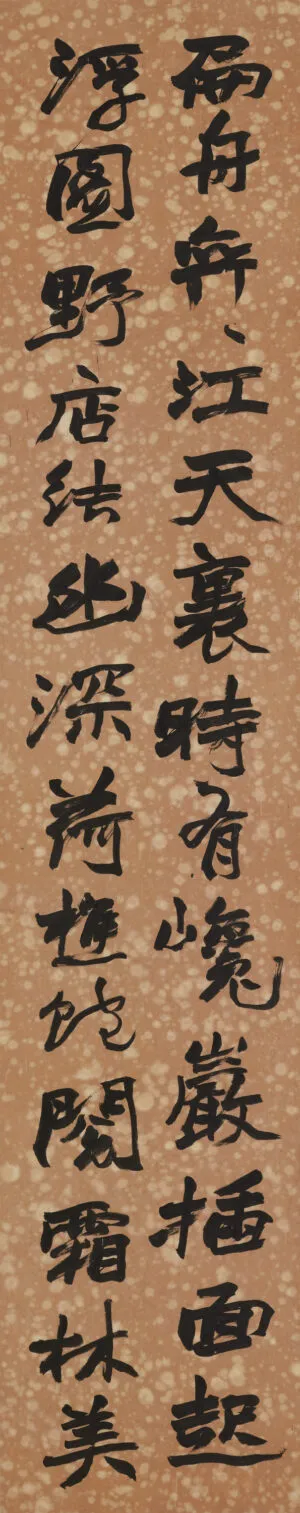 扁舟穽、江天裏時有巉巖插面起
浮圖野店法幽深荷樵蛇閱霜林美